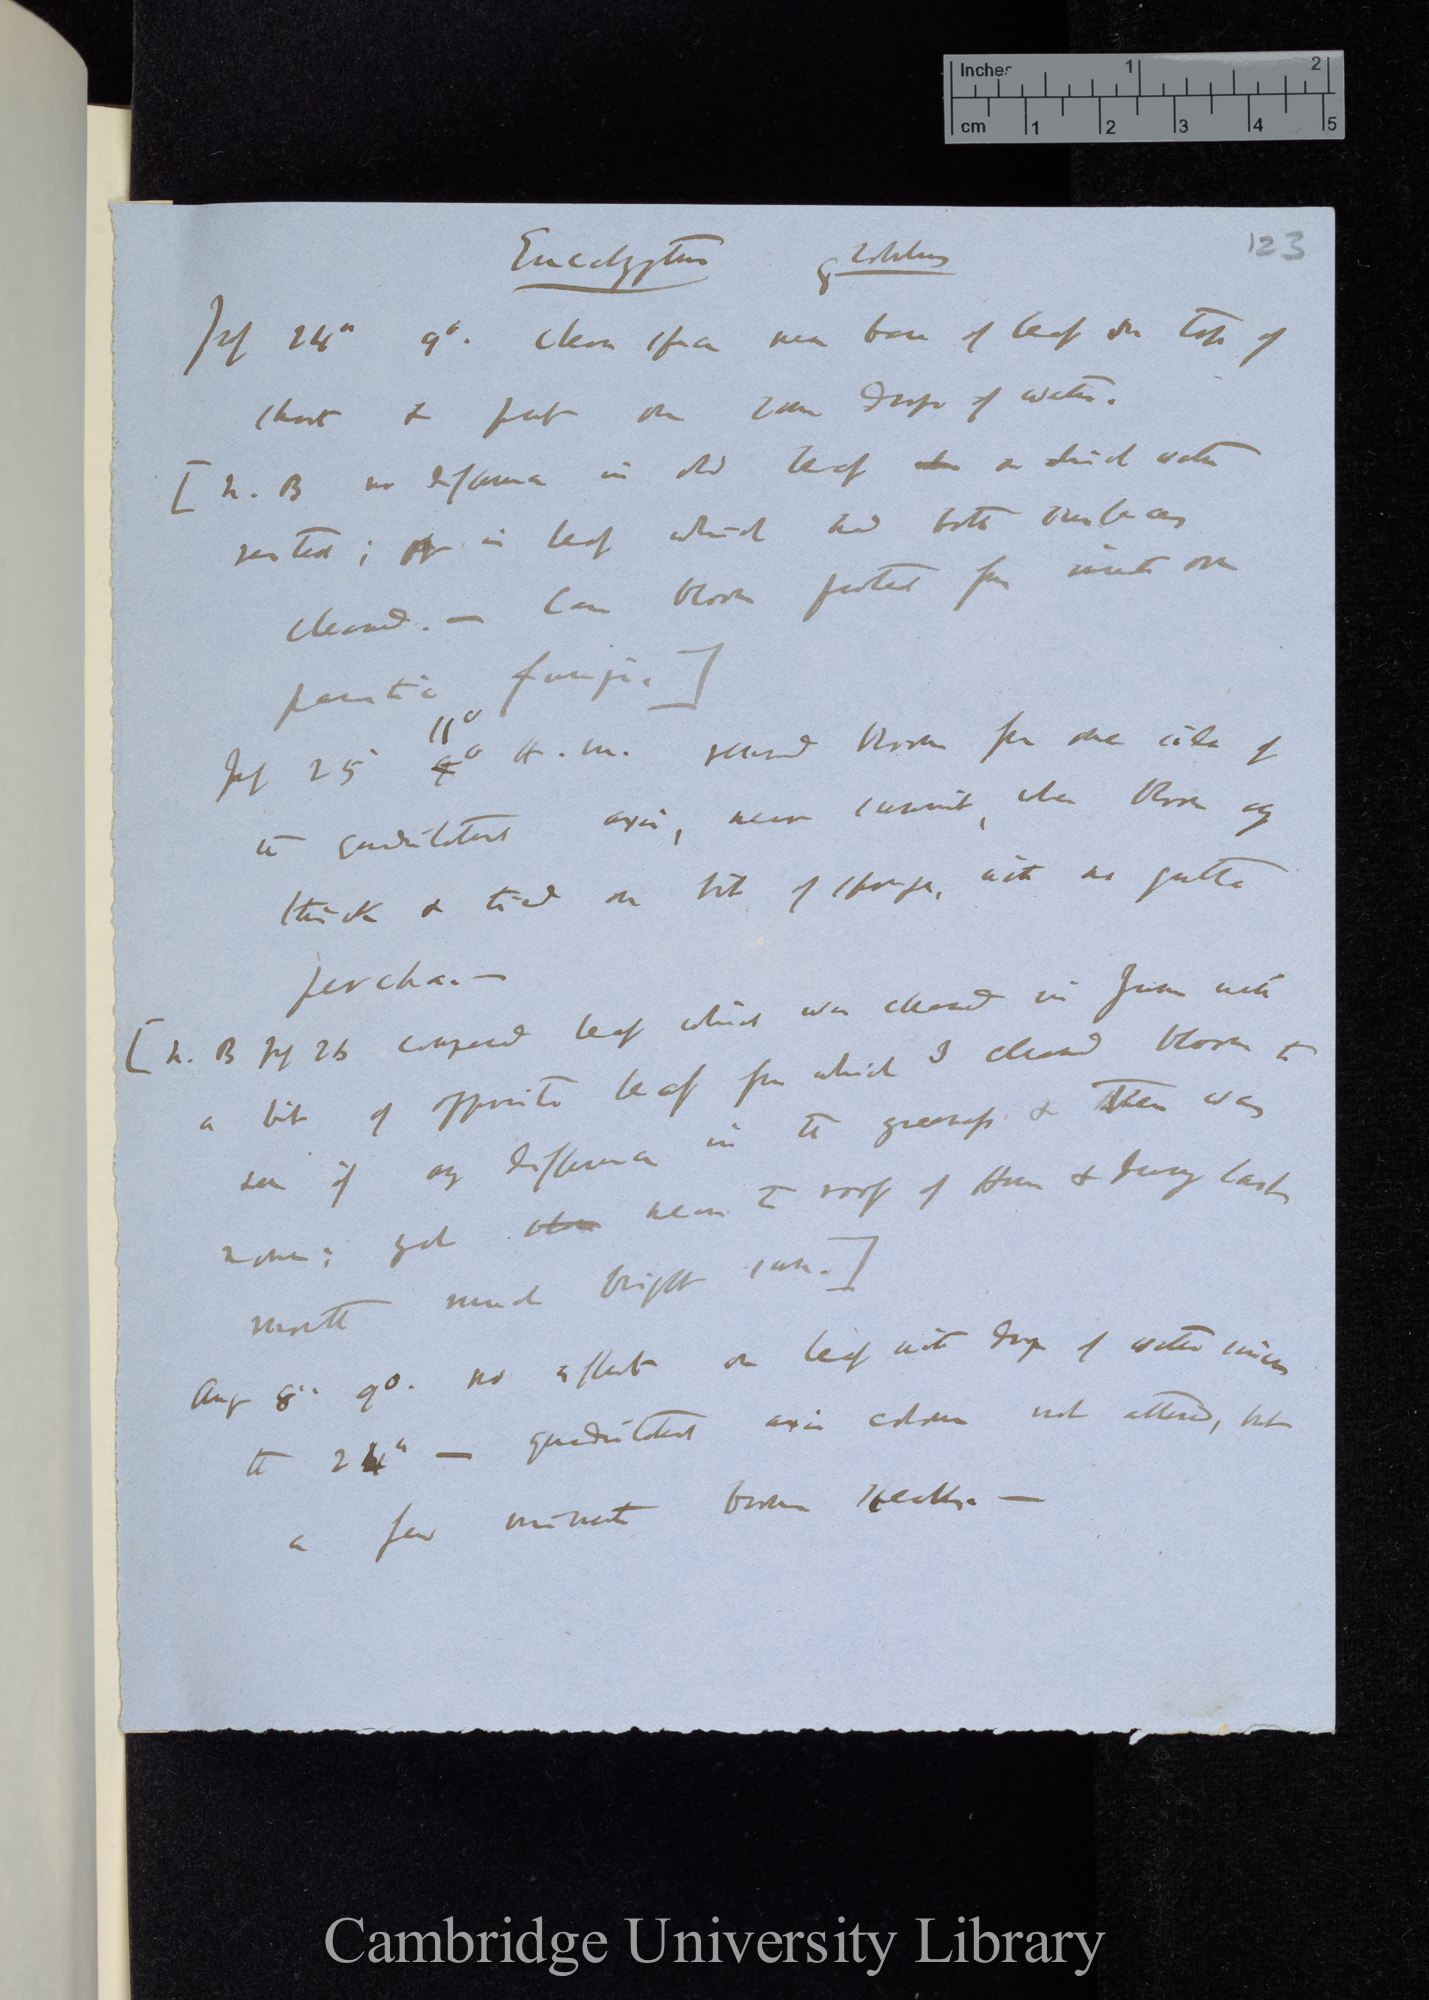 Inches 1 2
cm 1 2 3 4 5
123
Eucalyptus globulus
July 24th 9°. clean space near base of leaf on top of
shoot & put on some drops of water.
[N.B no difference in old leaf on which water
rested; or in leaf which had both surfaces
cleaned. — Can bloom protect from insects or
parasitic fungi.]
July 25 11° A.m. removed bloom from one side of
the quadrilateral axis, near summit, when bloom very
thick & tied on bit of sponge, with no gutta
percha. —
[N.B July 26 compared leaf which was cleaned in June with
a bit of opposite leaf from which I cleaned bloom to
see if any difference in the greeness & there was
none: yet near to roof of House & during last
month much bright sun.]
Aug 8th 9°. no effect on leaf with drops of water since
the 24th — quadrilateral axis colour not altered, but
a few minute brown specks. —
Cambridge University Library